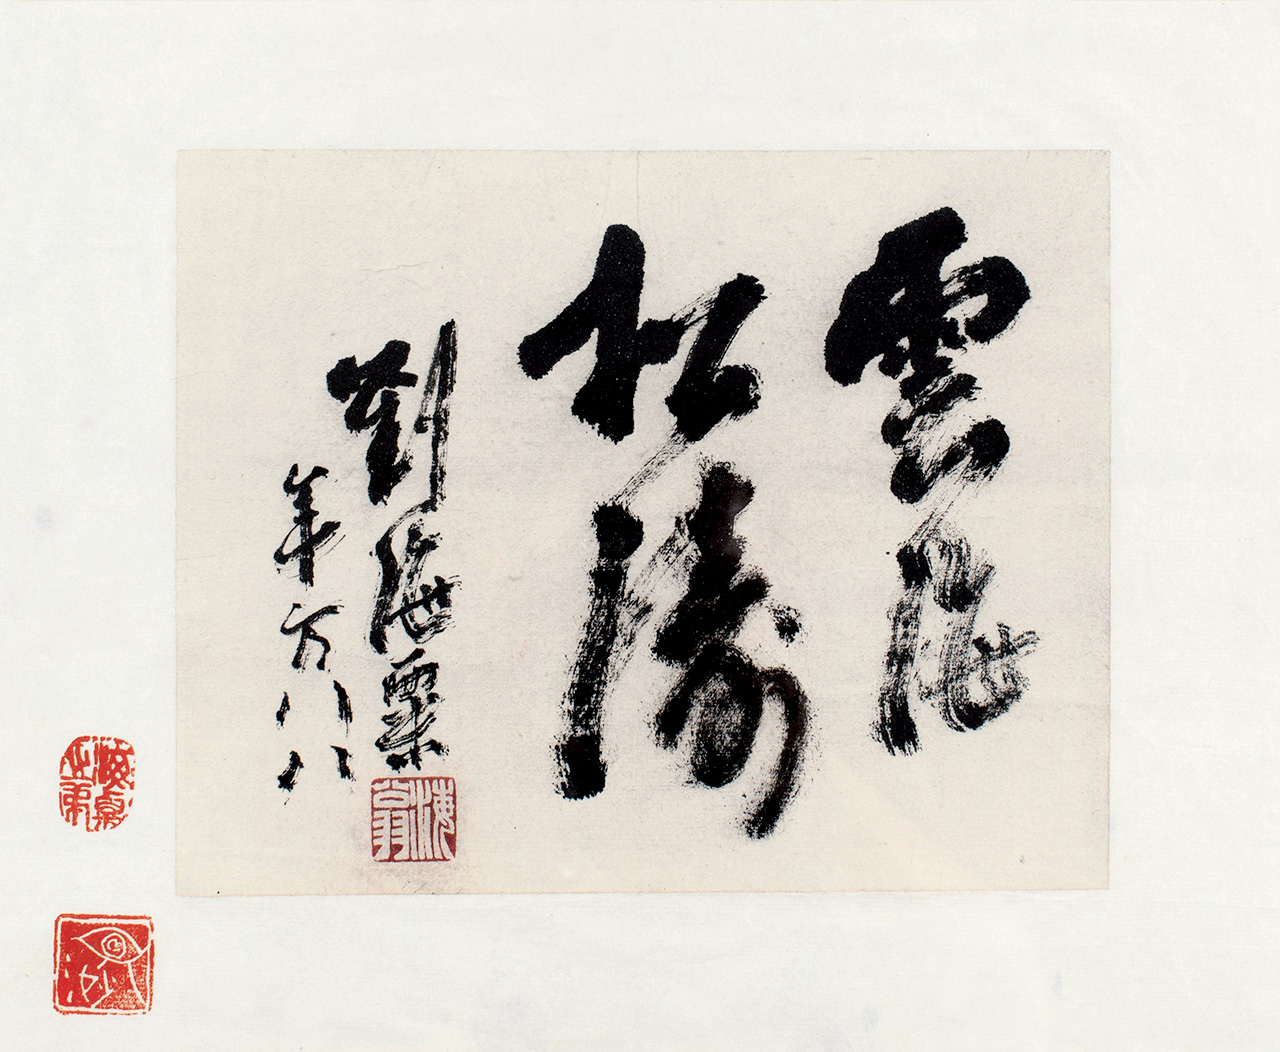 雲海
松濤
劉海粟
年方八八
海翁